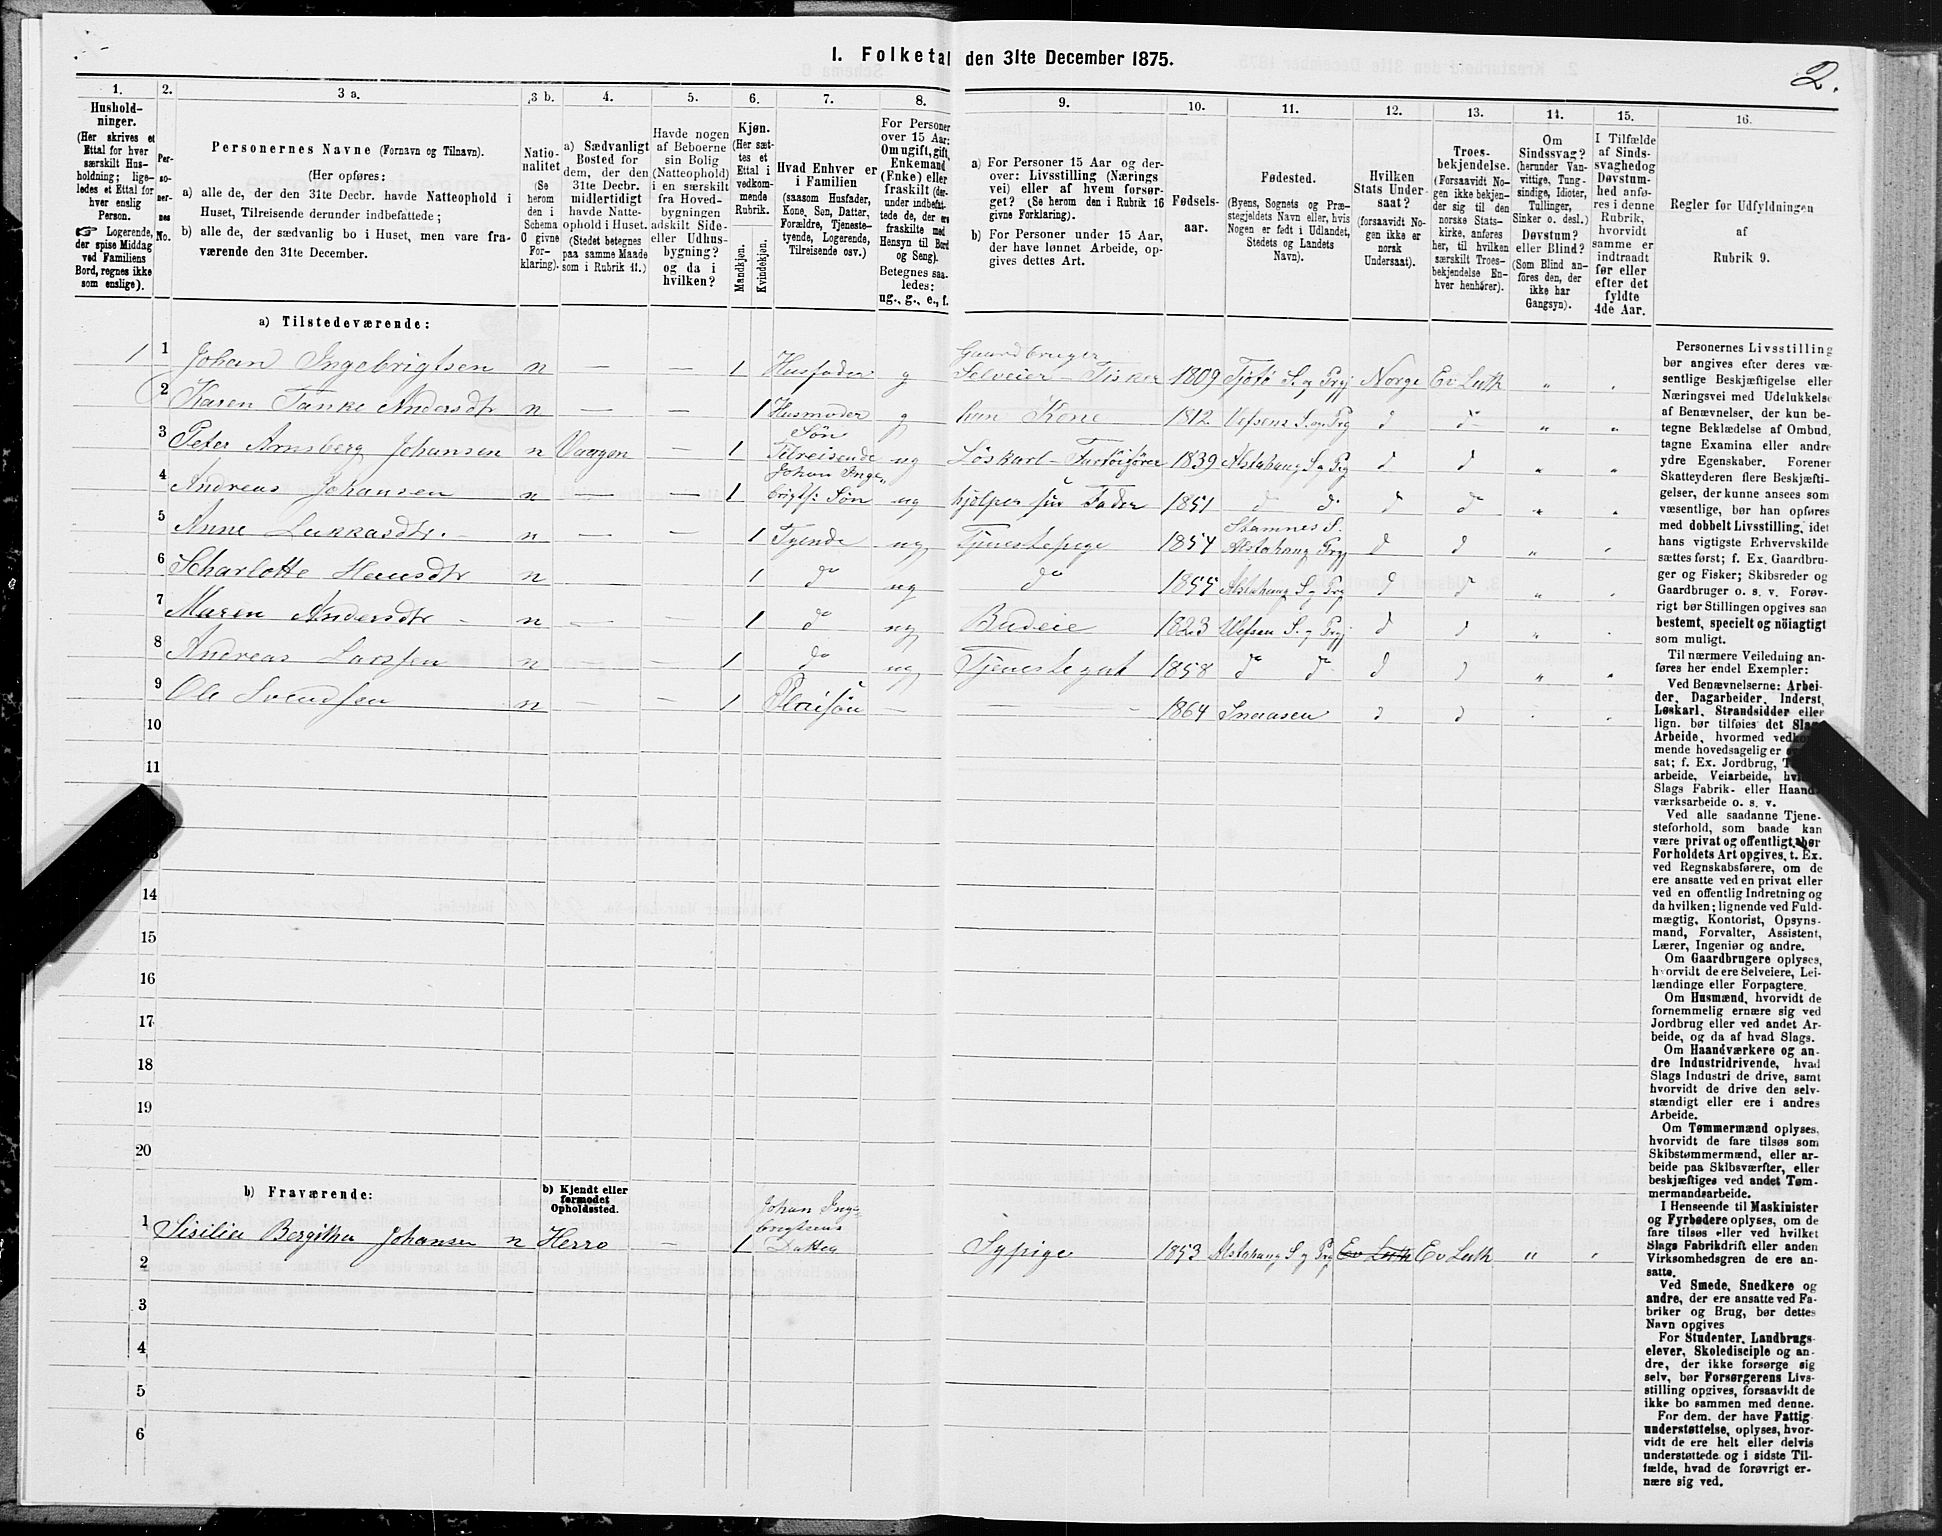 I. Folketal den 31te December 1875.
2.
1.
Hushold-
ninger.
(Her skrives et
Ettal for hver
særskilt Hus-
holdning; lige-
ledes et Ettal for
hver enslig
Person.
☞ Logerende,
der spise Middag
ved Familiens
Bord, regnes ikke
som enslige).
2.
Per-
so-
ner-
nes
No.
3 a.
Personernes Navne (Fornavn og Tilnavn).
(Her opføres:
a) alle de, der den 31te Decbr. havde Natteophold i
Huset, Tilreisende derunder indbefattede;
b) alle de, der sædvanlig bo i Huset, men vare fra-
værende den 31te December.
3 b.
Natio-
nalitet
(Se
herom
den i
Schema
O givne
For-
klaring).
4.
a) Sædvanligt
Bosted for
dem, der den
31te Decbr.
midlertidigt
havde Natte-
ophold i Huset.
(Stedet betegnes
paa samme Maade
som i Rubrik 11.)
5.
Havde nogen
af Beboerne
sin Bolig
(Natteophold)
i en særskilt
fra Hoved-
bygningen
adskilt Side-
eller Udhus-
bygning?
og da i
hvilken?
6.
Kjøn.
(Her sæt-
tes et
Ettal i
vedkom-
mende
Rubrik.
Mandkjøn.
Kvindekjøn.
7.
Hvad Enhver er
i Familien
(saasom Husfader,
Kone, Søn, Datter,
Forældre, Tjeneste-
tyende, Logerende,
Tilreisende osv.)
8.
For Personer
over 15 Aar:
Om ugift, gift,
Enkemand
(Enke) eller
fraskilt (der-
under indbefat-
tede de, der ere
fraskilte med
Hensyn til Bord
og Seng).
Betegnes saa-
ledes:
ug., g., e., f.
9.
a) For Personer 15 Aar og der-
over: Livsstilling (Nærings
vei) eller af hvem forsør-
get? (Se herom den i Rubrik 16
givne Forklaring).
b) For Personer under 15 Aar,
der have lønnet Arbeide, op-
gives dettes Art.
10.
Fødsels-
aar.
11.
Fødested.
(Byens, Sognets og Præ-
stegjeldets Navn eller, hvis
Nogen er født i Udlandet,
Stedets og Landets
Navn).
12.
Hvilken
Stats Under-
saat?
(forsaavidt No-
gen ikke er
norsk
Undersaat).
13.
Troes-
bekjendelse.
(Forsaavidt No-
gen ikke bekjen-
der sig til den
norske Stats-
kirke, anføres
her, til hvilken
særskilt Troes-
bekjendelse En-
hver henhører).
14.
Om
Sindssvag?
(herunder Van-
vittige, Tung-
sindige, Idioter,
Tullinger,
Sinker o. desl.)
Døvstum?
eller Blind?
(Som Blind an-
føres den, der
ikke har
Gangsyn).
15.
I Tilfælde
af Sinds-
svaghed og
Døvstum-
hed anfø-
res i denne
Rubrik,
hvorvidt
samme er
indtraadt
før eller
efter det
fyldte
4de Aar.
16.
Regler før Udfyldningen
af
Rubrik 9.
a) Tilstedeværende:
1 1 Johan Ingebrigtsen n — — 1 Husfader g Gaardbruger Selveier – Fisker 1809 Tjøtø S. og Prgj Norge Ev Luth „ „
2 Karen Tanke Andersdtr n — — 1 Husmoder g hans Kone 1812 Vefsens S. og Prg d d „ „
3 Peter Arnsberg Johansen n Vaagen — 1 Søn Tilreisende ug Løskarl – Fartøifører 1839 Alstahaug S. og Prg d d „ „
4 Andreas Johansen n — — 1 Johan Inge„ brigts: Søn ug hjelper sin Fader 1851 do do d d „ „
5 Anne Lukkasdtr. n — — 1 Tyende ug Tjenestepige 1854 Stamnes S. Alstahaug Prgj d d „ „
6 Scharlotte Hansdtr n — 1 do ug do 1855 Alstahaug S. og Prg d d „ „
7 Maren Andersdtr n — — 1 do ug Budeie 1823 Vefsen S. og Prgj d d „ „
8 Andreas Larssen n — — 1 do ug Tjenestegut 1858 do do d d „ „
9 Ole Svendsen n — 1 Pleiesøn — — 1864 Snaasen d d „ „
10
11
14
15
16
17
18
19
20
b) Fraværende:
b) Kjendt eller
formodet
Opholdssted.
1 Sisilia Bergitha Johansen n Herrø — 1 Johan Inge- brigtsens Datter Sypige 1853 Alstahaug S. og Prg Ev Luth Ev Luth „ „
2
3
4
5
6
Personernes Livsstilling
bør angives efter deres væ-
sentlige Beskjæftigelse eller
Næringsvei med Udelukkelse
af Benævnelser, der kun be-
tegne Beklædelse af Ombud,
tagne Examina eller andre
ydre Egenskaber. Forener
Skatteyderen flere Beskjæfti-
gelser, der kunne ansees som
væsentlige, bør han opføres
med dobbelt Livsstilling, idet
hans vigtigste Erhvervskilde
sættes først; f. Ex. Gaardbru-
ger og Fisker; Skibsreder og
Gaardbruger o. s. v. Forøv-
rigt bør Stillingen opgives saa
bestemt, specielt og nöiagtigt
som muligt.
Til nærmere Veiledning an-
føres her endel Exempler:
Ved Benævnelserne: Arbei-
der, Dagarbeider, Inderst,
Løskarl, Strandsidder eller
lign. bør tilføies det Slags
Arbeide, hvormed
mende hovedsagelig er
sat; f. Ex. Jordbrug,
arbeide, Veiarbeide,
Slags Fabrik- eller Haand-
værksarbeide o. s. v.
Ved alle saadanne Tjene-
steforhold, som baade kan
være privat og offentligt, bør
Forholdets Art opgives, t. Ex.
ved Regnskabsførere, om de
ere ansatte ved en privat eller
ved en offentlig Indretning og
da hvilken; lignende ved Fuld-
mægtig, Kontorist, Opsyns-
mand, Forvalter, Assistent,
Lærer, Ingeniør og andre.
Om Gaardbrugere oplyses,
hvorvidt de ere Selveiere, Lei-
lændinge eller Forpagtere.
Om Husmænd, hvorvidt de
fornemmelig ernære sig ved
Jordbrug eller ved andet Ar-
beide, og da af hvad Slags.
Om Haandværkere og an-
dre Industridrivende, hvad
Slags Industri de drive, samt
hvorvidt de drive den selv-
stændigt eller ere i andres
Arbeide.
Om Tømmermænd oplyses,
hvorvidt de fare tilsøs som
Skibstømmermænd, eller ar-
beide paa Skibsværfter, eller
beskjæftiges ved andet Tøm-
mermandsarbeide.
I Henseende til Maskinister
og Fyrbødere oplyses, om de
fare tilsøs eller ved hvilket
Slags Fabrikdrift eller anden
Virksomhedsgren de ere an-
satte.
Ved Smede, Snedkere og
andre, der ere ansatte ved Fa-
briker og Brug, bør dettes
Navn opgives
For Studenter, Landbrugs-
elever, Skoledisciple og an-
dre, der ikke forsørge sig
selv, bør Forsørgerens Livs-
stilling opgives, forsaavidt de
ikke bo sammen med denne.
For dem, der have Fattig-
understøttelse, oplyses, hvor-
vidt de ere helt eller delvis
understøttede og i sidste Til-
fælde, hvad de forøvrigt er-
nære sig ved.